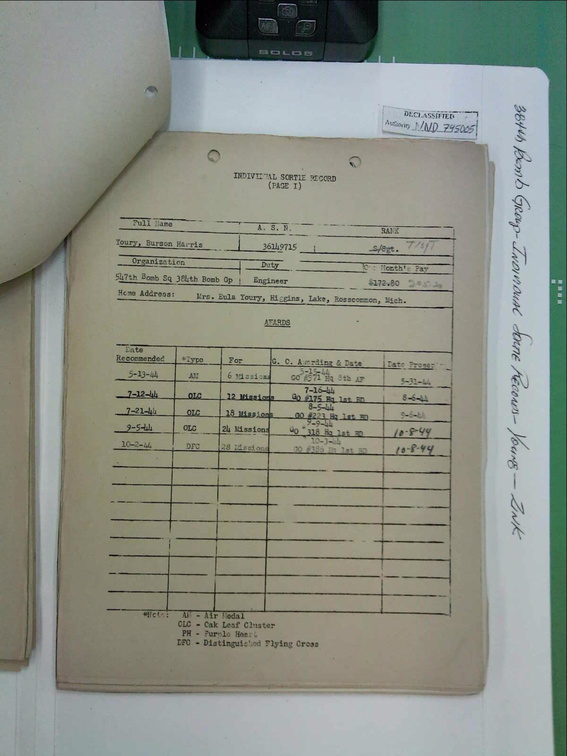 SOLOS
DECLASSIFIED
Authority NND 745005
384th Bomb Group - Individual Sortie Records - Young - Zink
INDIVIDUAL SORTIE RECORD
(PAGE I)
Full Name A. S. N. RANK
Youry, Burson Harris 36149715 S/Sgt. T/Sgt
Organization Duty Month's Pay
547th Bomb Sq 384th Bomb Gp Engineer $172.80
Home Address: Mrs. Eula Youry, Higgins, Lake, Rosscommon, Mich.
AWARDS
Date Recommended *Type For G. C. Awarding & Date Date Presented
5-13-44 AM 6 Missions 5-15-44 GO #371 Hq 8th AF 5-31-44
7-12-44 OLC 12 Missions 7-16-44 GO #175 Hq 1st BD 8-6-44
7-21-44 OLC 18 Missions 8-5-44 GO #223 Hq 1st BD 8-6-44
9-5-44 OLC 24 Missions 9-9-44 GO #318 Hq 1st BD 10-8-44
10-2-44 DFC 28 Missions 10-3-44 GO Hq 1st BD 10-8-44
*Note: AM - Air Medal
OLC - Oak Leaf Cluster
PH - Purple Heart
DFC - Distinguished Flying Cross